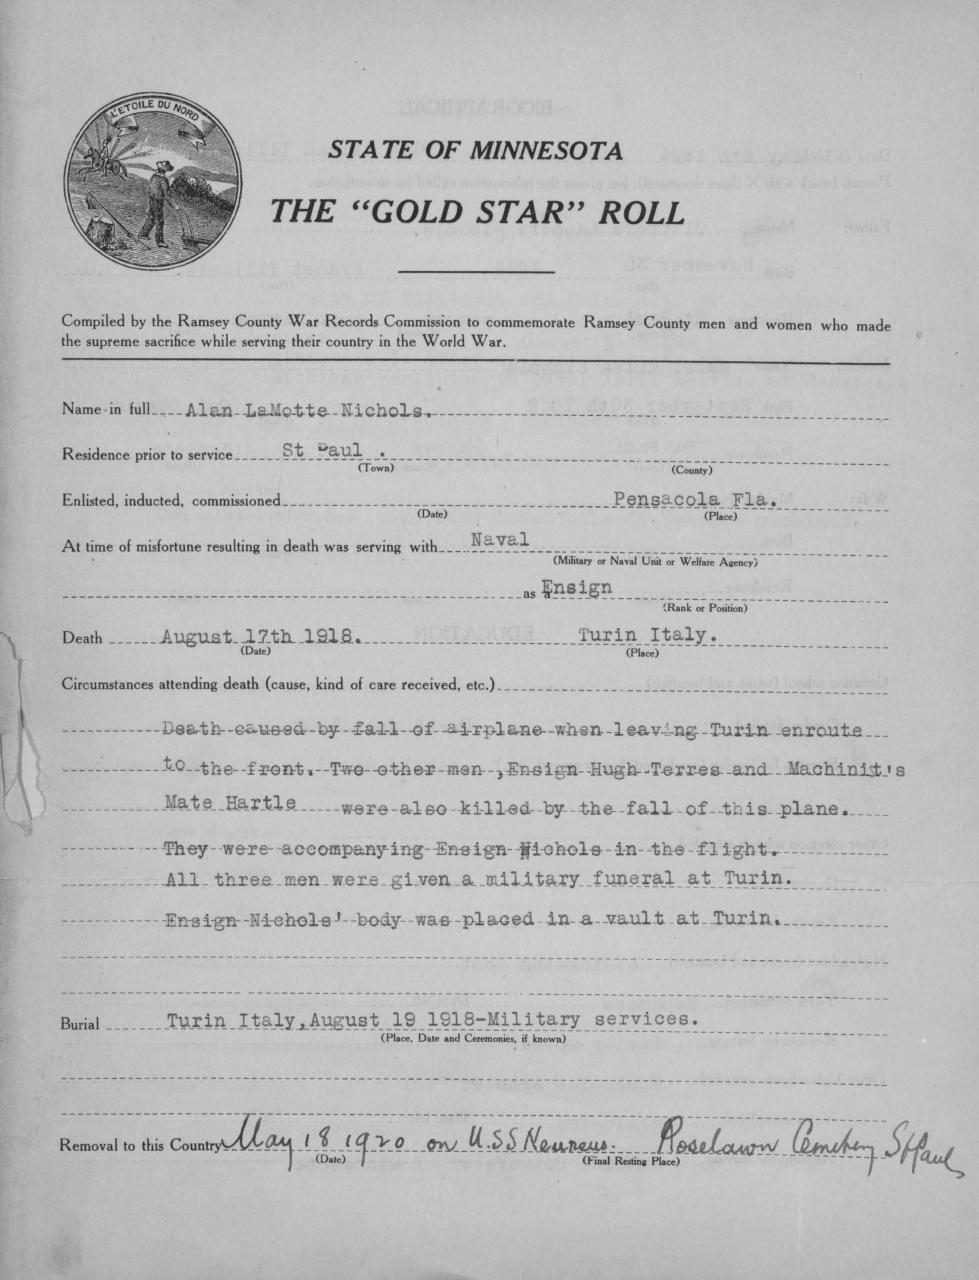 L'ETOILE DU NORD
STATE OF MINNESOTA
THE “GOLD STAR” ROLL
Compiled by the Ramsey County War Records Commission to commemorate Ramsey County men and women who made
the supreme sacrifice while serving their country in the World War.
Name in full Alan LaMotte Nichols.
Residence prior to service St Paul .
(Town) (County)
Enlisted, inducted, commissioned Pensacola Fla.
(Date) (Place)
At time of misfortune resulting in death was serving with Naval
(Military or Naval Unit or Welfare Agency)
as Ensign
(Rank or Position)
Death August 17th 1918. Turin Italy.
(Date) (Place)
Circumstances attending death (cause, kind of care received, etc.)
Death caused by fall of airplane when leaving Turin enroute
to the front. Two other men ,Ensign Hugh Terres and Machinit's
Mate Hartle were also killed by the fall of this plane.
They were accompanying Ensign Nichols in the flight.
All three men were given a military funeral at Turin.
Ensign Nichols' body was placed in a vault at Turin.
Burial Turin Italy,August 19 1918-Military services.
(Place, Date and Ceremonies, if known)
Removal to this Country May 18 1920 on U.S.S Nereus. Roselawn Cemetery St Paul
(Date) (Final Resting Place)